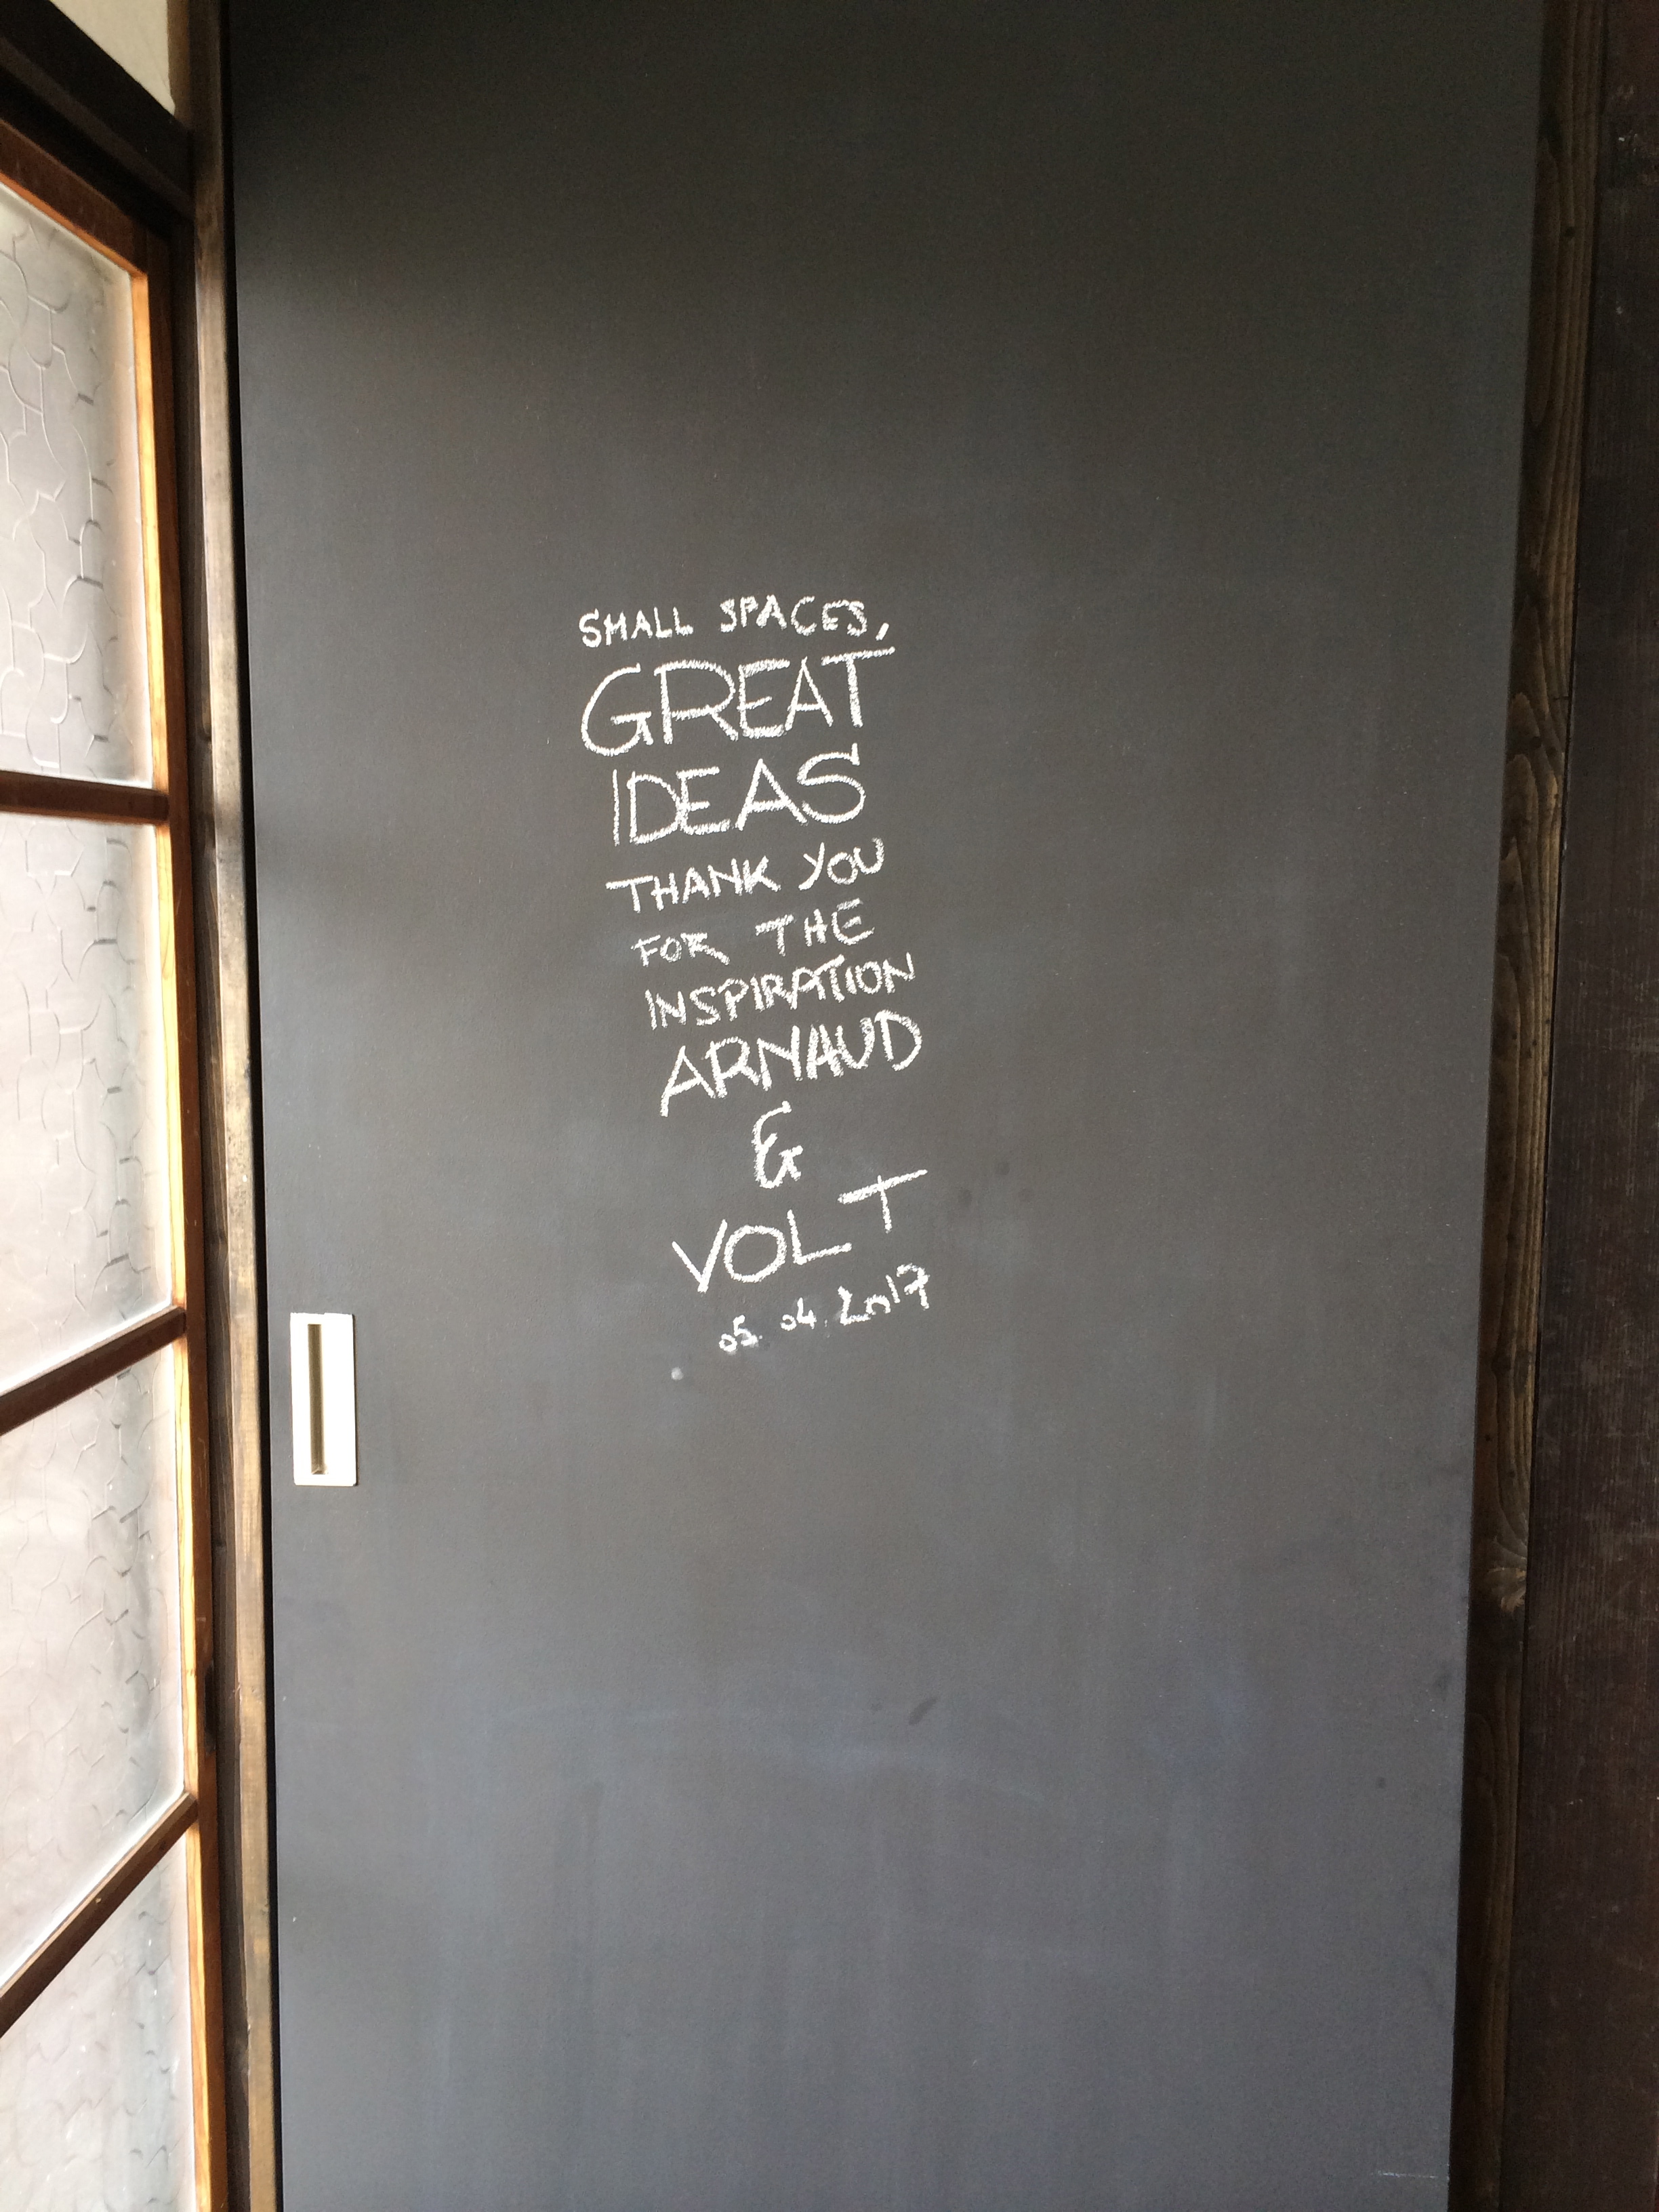 SMALL SPACES,
GREAT
IDEAS
THANK YOU
FOR THE
INSPIRATION
ARNAUD
&
VOLT
05.04.2017